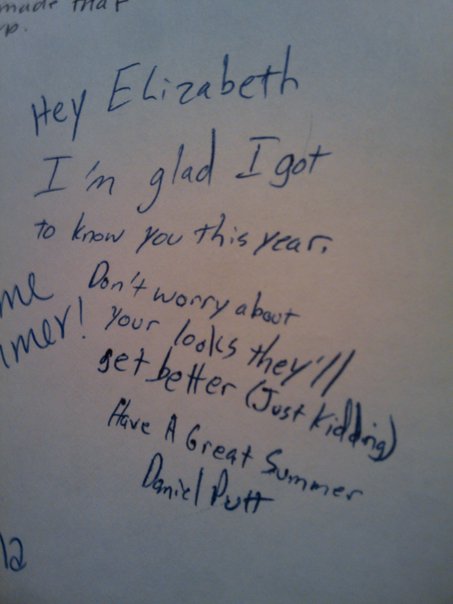 made that
up.
Hey Elizabeth
I'm glad I got
to know you this year.
Don't worry about
your looks they'll
get better (Just Kidding)
Have A Great Summer
Daniel Putt
me
mmer!
12